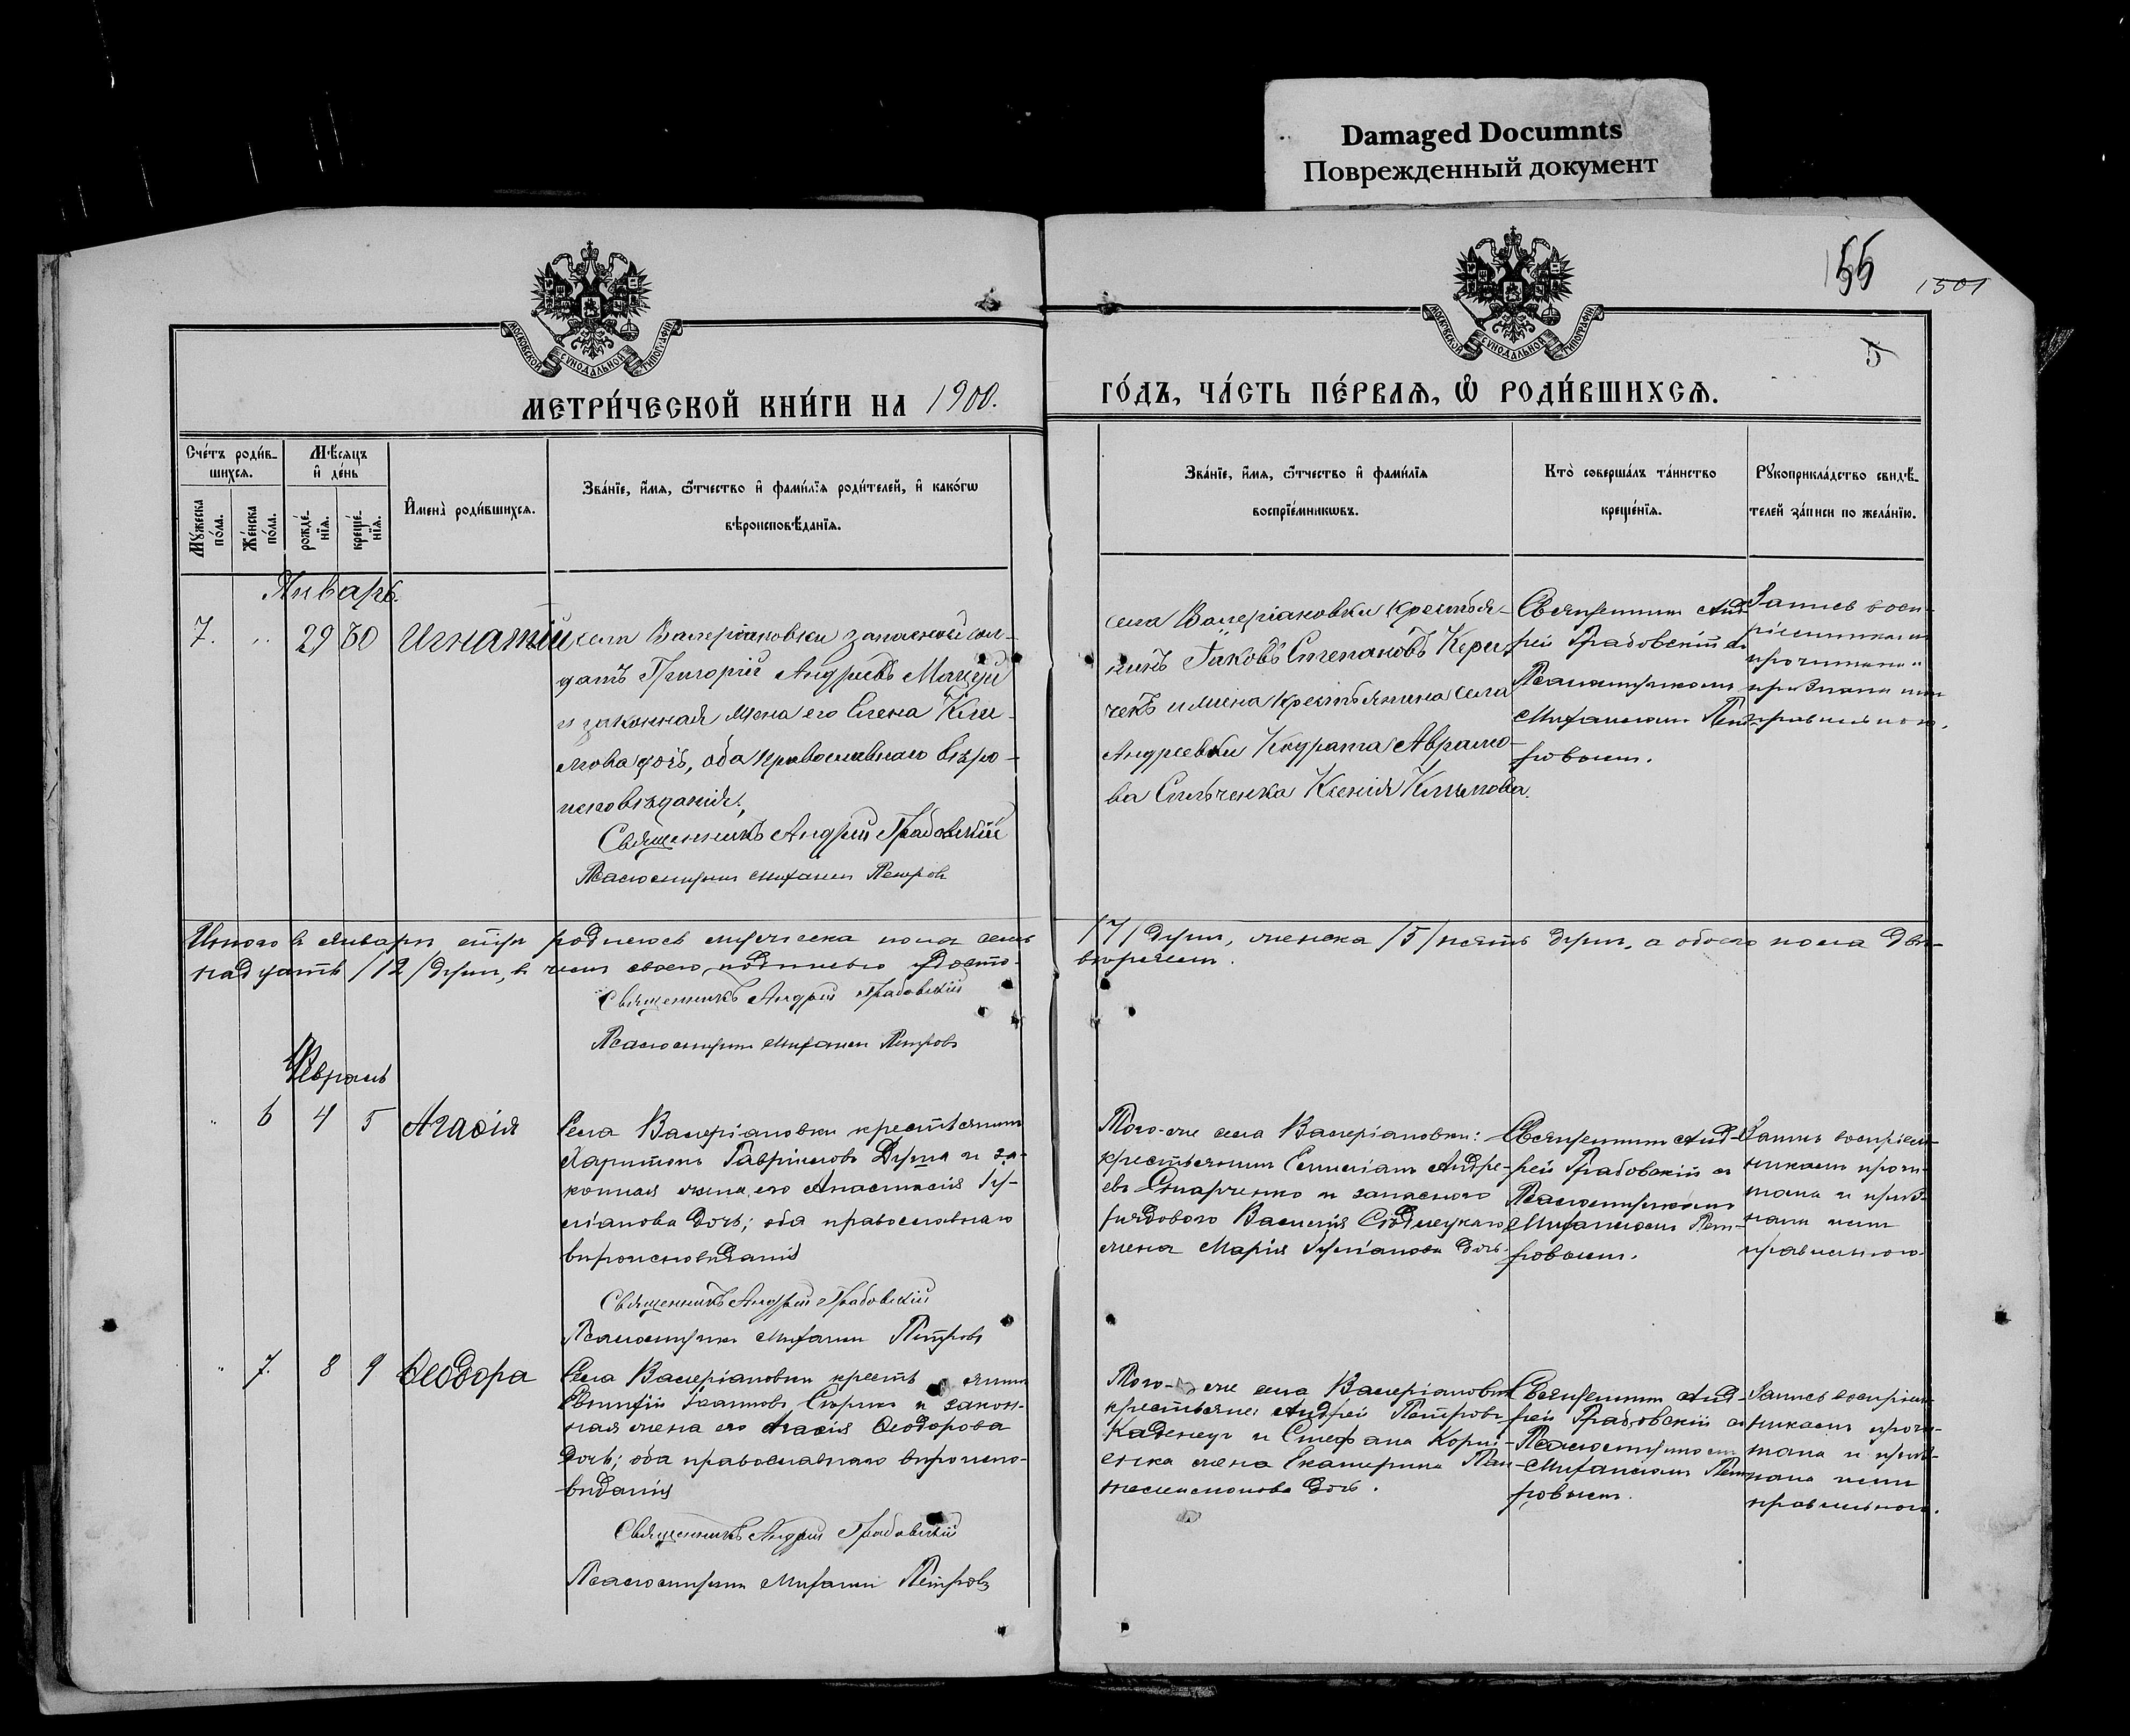 Damaged Documnts
Поврежденный документ
55
1501
5
МОСКОВСКОЙ СѴНОДАЛЬНОЙ ТИПОГРАФІИ
МОСКОВСКОЙ СѴНОДАЛЬНОЙ ТИПОГРАФІИ
МЕТРИ́ЧЕСКОЙ КНИ́ГИ НА 1900.
ГО́ДЪ, ЧА́СТЬ ПЕ́РВАѦ, Ѽ РОДИ́ВШИХСѦ.
Сче́тъ роди́в-
шихсѧ.
Мѣ́сѧцъ
и҆ де́нь
Мꙋ́жеска по́ла.
Же́нска по́ла.
рожде́-
нїѧ.
креще́-
нїѧ.
И҆мена̀ роди́вшихсѧ.
Зва́нїе, и҆́мѧ, ѻ҆́тчество и҆ фами́лїѧ роди́телей, и҆ како́гѡ
вѣроисповѣ́данїѧ.
Зва́нїе, и҆́мѧ, ѻ҆́тчество и҆ фами́лїѧ
воспрїе́мникѡвъ.
Кто̀ соверша́лъ та́инство
креще́нїѧ.
Рꙋкоприкла́дство свидѣ́-
телей за́писи по жела́нїю.
Январь.
7. „ 29 30 Игнатій
села Валеріановки запасный сол-
датъ Григорій Андреевъ Мацуй
и законная жена его Елена Кли-
мова дочь, оба православнаго вѣро-
исповѣданія.
Священникъ Андрей Грабовскій
Псаломщикъ Михаилъ Петровъ
села Валеріановки крестья-
нинъ Іаковъ Степановъ
и жена крестьянина села
Андреевки Кодрата Авраамо-
ва Сильченка Ксенія Климова.
Священник Анд-
рей Грабовскій съ
Псаломщиком
Михаилом Пет-
ровым.
Запись восп-
ріемниками
прочитана и
признана ими
правильною.
Итого въ январѣ мцѣ родилось мужеска пола семь /7/ душъ, женска /5/ пять душъ, а обоего пола две-
надцать /12/ душъ, в чем своею подписью удосто-
вѣряем.
Священникъ Андрей Грабовскій
Псаломщикъ Михаилъ Петровъ
Февраль
„ 6 4 5 Агафія
Села Валеріановки крестьянин
Харитон Гавриилов и за-
конная жена его Анастасія Іу-
ліанова дочь; оба православнаго
вѣроисповѣданія
Священникъ Андрей Грабовскій
Псаломщикъ Михаилъ Петровъ
Того-же села Валеріановки:
крестьянин Андре-
ев и запаснаго
рядового Василія
жена Марія Іуліанова дочь.
Священник Анд-
рей Грабовскій съ
Псаломщиком
Михаилом Пет-
ровым.
Запись воспріем-
никами прочи-
тана и приз-
нана ими
правильною.
„ 7. 8 9 Ѳеодора
Села Валеріановки крестьянин
Евфимій Іоаннов и закон-
ная жена его Агафія Ѳеодорова
дочь; оба православнаго вѣроиспо-
вѣданія
Священникъ Андрей Грабовскій
Псаломщикъ Михаилъ Петровъ
Того-же села Валеріановки
крестьяне: Андрей Петров
и Стефана Корни-
енка жена Екатерина Пан-
телеимонова дочь.
Священник Анд-
рей Грабовскій съ
Псаломщиком
Михаилом Пет-
ровым.
Запись воспріем-
никами прочи-
тана и приз-
нана ими
правильною.